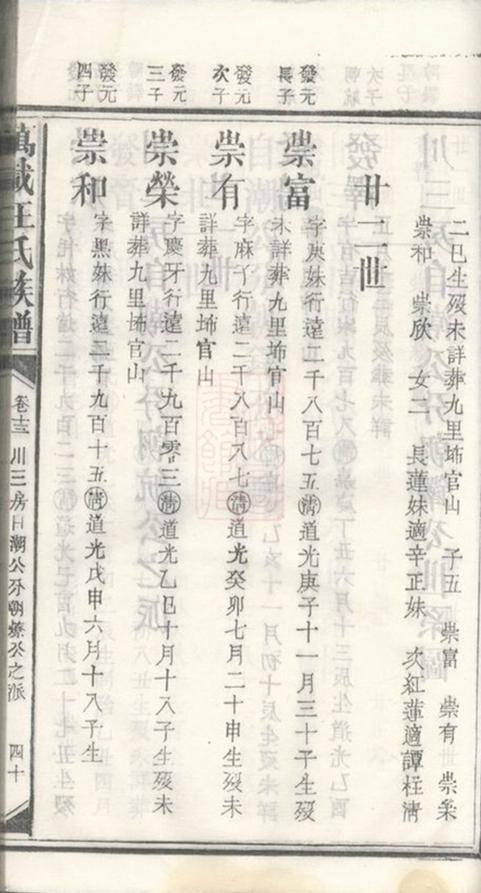 二巳生歿未詳葬九里埠官山 子五 崇富 崇有 崇榮
崇和 崇欣 女二 長蓮妹適辛正妹 次紅蓮適譚柱淸
廿二世
發元長子
崇富
字庚妹行遠二千八百七五淸道光庚子十一月三十子生歿
未詳葬九里埠官山
發元次子
崇有
字麻丫行遠二千八百八七淸道光癸卯七月二十申生歿未
詳葬九里埠官山
發元三子
崇榮
字慶牙行遠二千九百零三淸道光乙巳十月十八子生歿未
詳葬九里埠官山
發元四子
崇和
字黑妹行遠二千九百十五淸道光戊申六月十八子生
萬載汪氏族譜
卷十三 川三房自潮公分朝
公之派
四十